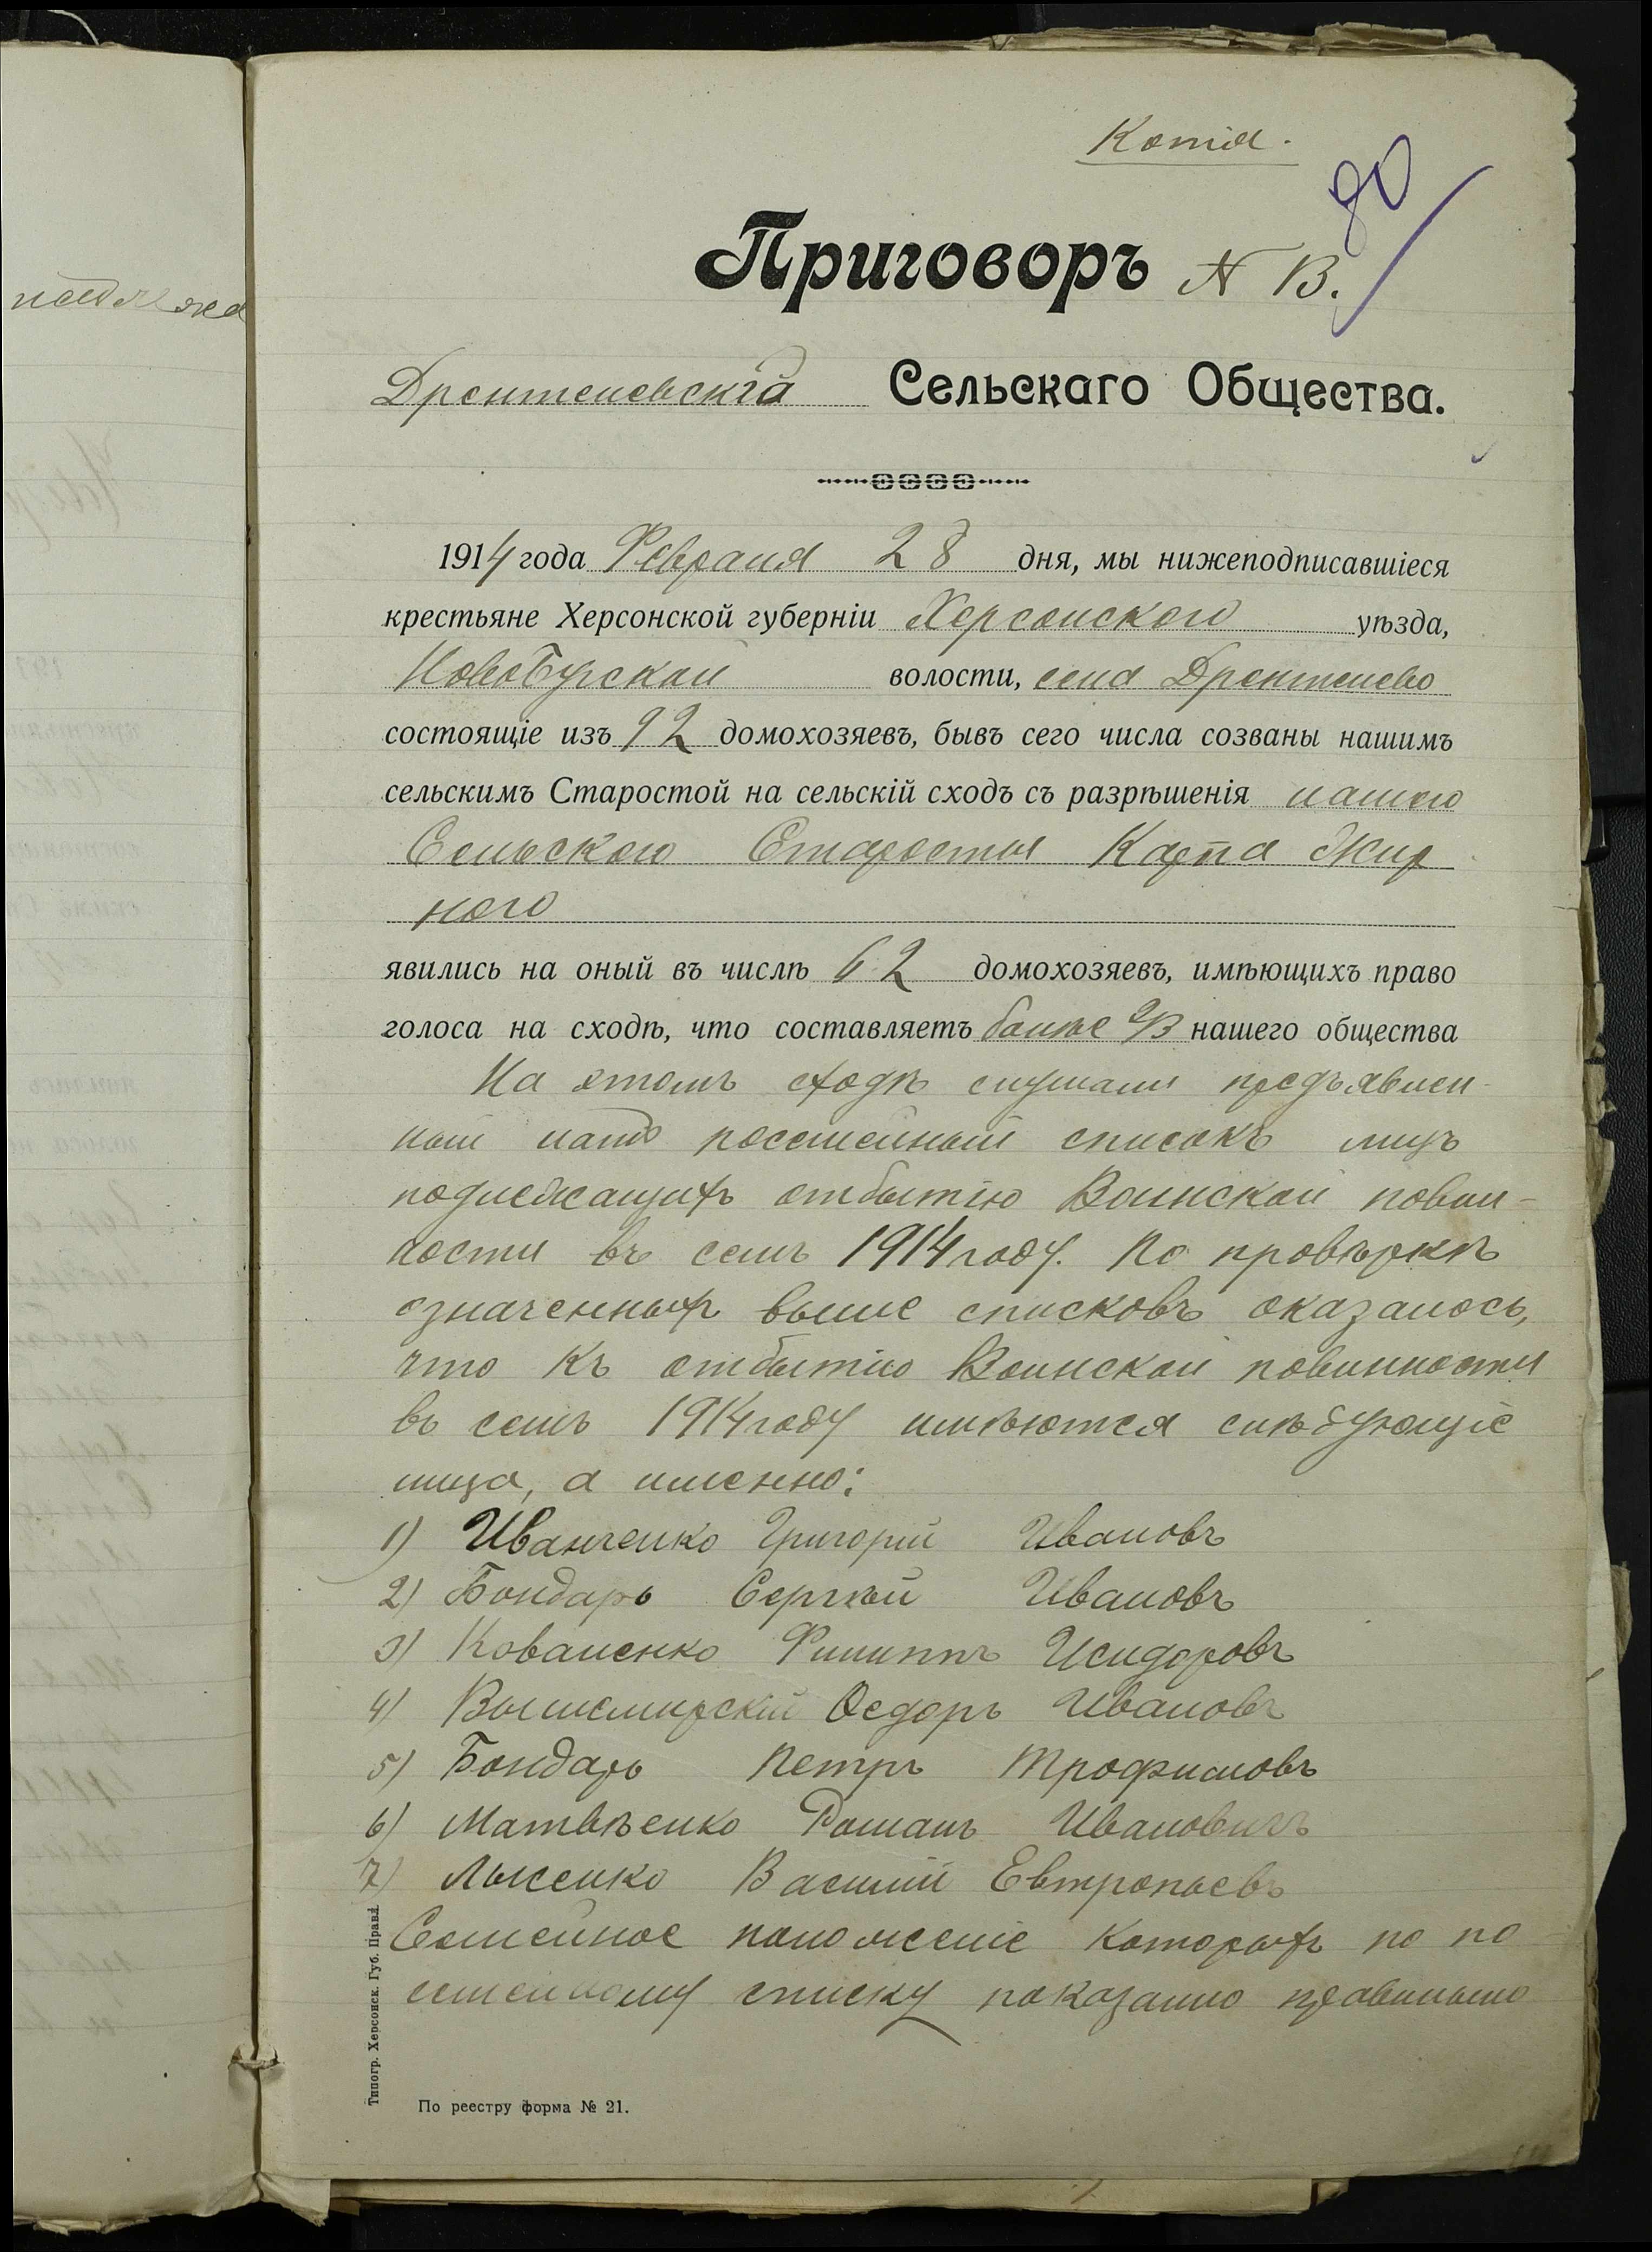 Копія.
90
Приговоръ N В.
Дрентелевскій Сельскаго Общества.
1914 года Февраля 28 дня, мы нижеподписавшіеся
крестьяне Херсонской губерніи Херсонского уѣзда,
НовоБугской волости, села Дрентелево
состоящіе изъ 92 домохозяевъ, бывъ сего числа созваны нашимъ
сельскимъ Старостой на сельскій сходъ съ разрѣшенія нашого
Сельского Старосты Карпа Жир
ного
явились на оный въ числѣ 62 домохозяевъ, имѣющихъ право
голоса на сходѣ, что составляетъ болѣе 2/3 нашего общества
На этомъ сходѣ слушали предъявлен-
ный намъ посемейный списокъ лицъ
подлежащихъ отбытію Воинской повин-
ности въ семъ 1914 году. По провѣркѣ
означенныхъ выше списковъ оказалось,
что къ отбытію Воинской повинности
въ семъ 1914 году имѣются слѣдующіе
лица, а именно:
1) Иванченко Григорій Ивановъ
2) Бондарь Сергѣй Ивановъ
3) Коваленко Филиппъ Исидоровъ
4) Вышемирскій Ѳедоръ Ивановъ
5) Бондарь Петръ Трофимовъ
6) Матвѣенко Романъ Ивановичъ
7) Лысенко Василій Евтропьевъ
Семейное положеніе которыхъ по по
семейному списку показанно правильно
Типогр. Херсонск. Губ. Правл.
По реестру форма № 21.